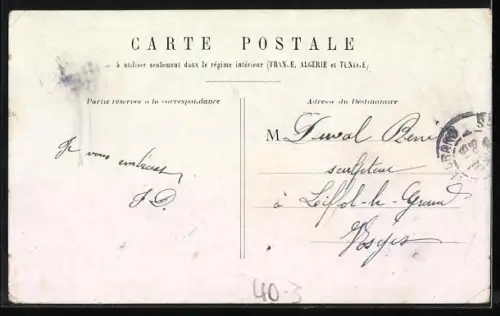 CARTE POSTALE
à utiliser seulement dans le régime intérieur (FRANCE, ALGÉRIE et TUNISIE)
Partie réservée à la correspondance
Adresse du Destinataire
Je vous embrasse
J D.
M Duval René
sculpteur
à Liffol-le-Grand
Vosges
40-3